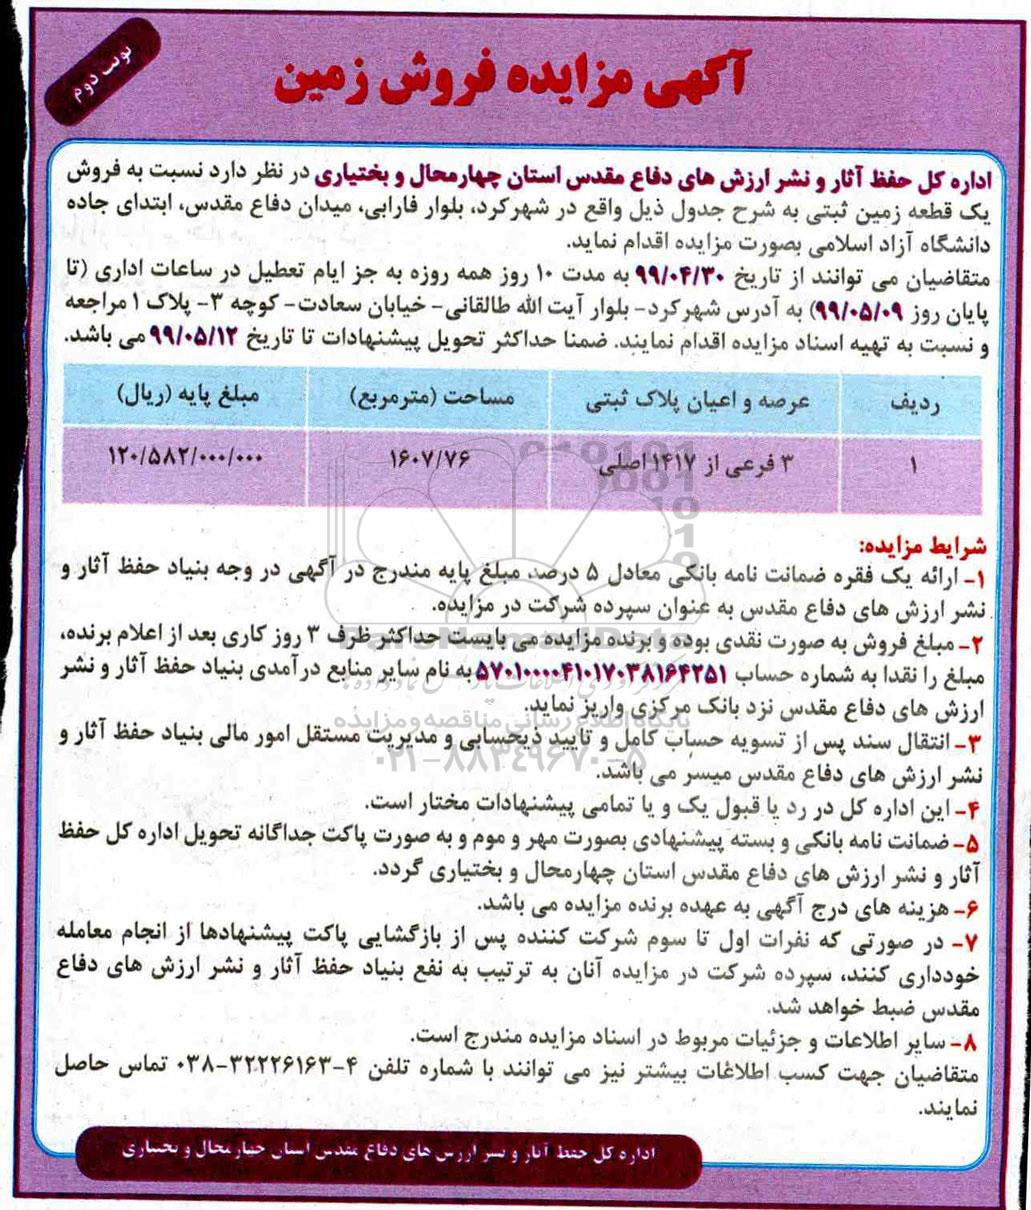 نوبت دوم
آگهی مزایده فروش زمین
اداره کل حفظ آثار و نشر ارزش های دفاع مقدس استان چهارمحال و بختیاری در نظر دارد نسبت به فروش
یک قطعه زمین ثبتی به شرح جدول ذیل واقع در شهرکرد، بلوار فارابی، میدان دفاع مقدس، ابتدای جاده
دانشگاه آزاد اسلامی بصورت مزایده اقدام نماید.
متقاضیان می توانند از تاریخ ۹۹/۰۴/۳۰ به مدت ۱۰ روز همه روزه به جز ایام تعطیل در ساعات اداری (تا
پایان روز ۹۹/۰۵/۰۹) به آدرس شهرکرد- بلوار آیت الله طالقانی- خیابان سعادت- کوچه ۳- پلاک ۱ مراجعه
و نسبت به تهیه اسناد مزایده اقدام نمایند. ضمنا حداکثر تحویل پیشنهادات تا تاریخ ۹۹/۰۵/۱۲ می باشد.
ردیف عرصه و اعیان پلاک ثبتی مساحت (مترمربع) مبلغ پایه (ریال)
۱ ۳ فرعی از ۱۴۱۷ اصلی ۱۶۰۷/۷۶ ۱۲۰/۵۸۲/۰۰۰/۰۰۰
شرایط مزایده:
۱- ارائه یک فقره ضمانت نامه بانکی معادل ۵ درصد مبلغ پایه مندرج در آگهی در وجه بنیاد حفظ آثار و
نشر ارزش های دفاع مقدس به عنوان سپرده شرکت در مزایده.
۲- مبلغ فروش به صورت نقدی بوده و برنده مزایده می بایست حداکثر ظرف ۳ روز کاری بعد از اعلام برنده،
مبلغ را نقدا به شماره حساب ۵۷۰۱۰۰۰۰۴۱۰۱۷۰۳۸۱۶۴۲۵۱ به نام سایر منابع درآمدی بنیاد حفظ آثار و نشر
ارزش های دفاع مقدس نزد بانک مرکزی واریز نماید.
۳- انتقال سند پس از تسویه حساب کامل و تایید ذیحسابی و مدیریت مستقل امور مالی بنیاد حفظ آثار و
نشر ارزش های دفاع مقدس میسر می باشد.
۴- این اداره کل در رد یا قبول یک و یا تمامی پیشنهادات مختار است.
۵- ضمانت نامه بانکی و بسته پیشنهادی بصورت مهر و موم و به صورت پاکت جداگانه تحویل اداره کل حفظ
آثار و نشر ارزش های دفاع مقدس استان چهارمحال و بختیاری گردد.
۶- هزینه های درج آگهی به عهده برنده مزایده می باشد.
۷- در صورتی که نفرات اول تا سوم شرکت کننده پس از بازگشایی پاکت پیشنهادها از انجام معامله
خودداری کنند، سپرده شرکت در مزایده آنان به ترتیب به نفع بنیاد حفظ آثار و نشر ارزش های دفاع
مقدس ضبط خواهد شد.
۸- سایر اطلاعات و جزئیات مربوط در اسناد مزایده مندرج است.
متقاضیان جهت کسب اطلاعات بیشتر نیز می توانند با شماره تلفن ۴-۳۲۲۲۶۱۶۳-۰۳۸ تماس حاصل
نمایند.
اداره کل حفظ آثار و نشر ارزش های دفاع مقدس استان چهارمحال و بختیاری
ParsNamadData
پایگاه اطلاع رسانی مناقصه و مزایده
۰۲۱-۸۸۳۴۹۶۷۰-۵